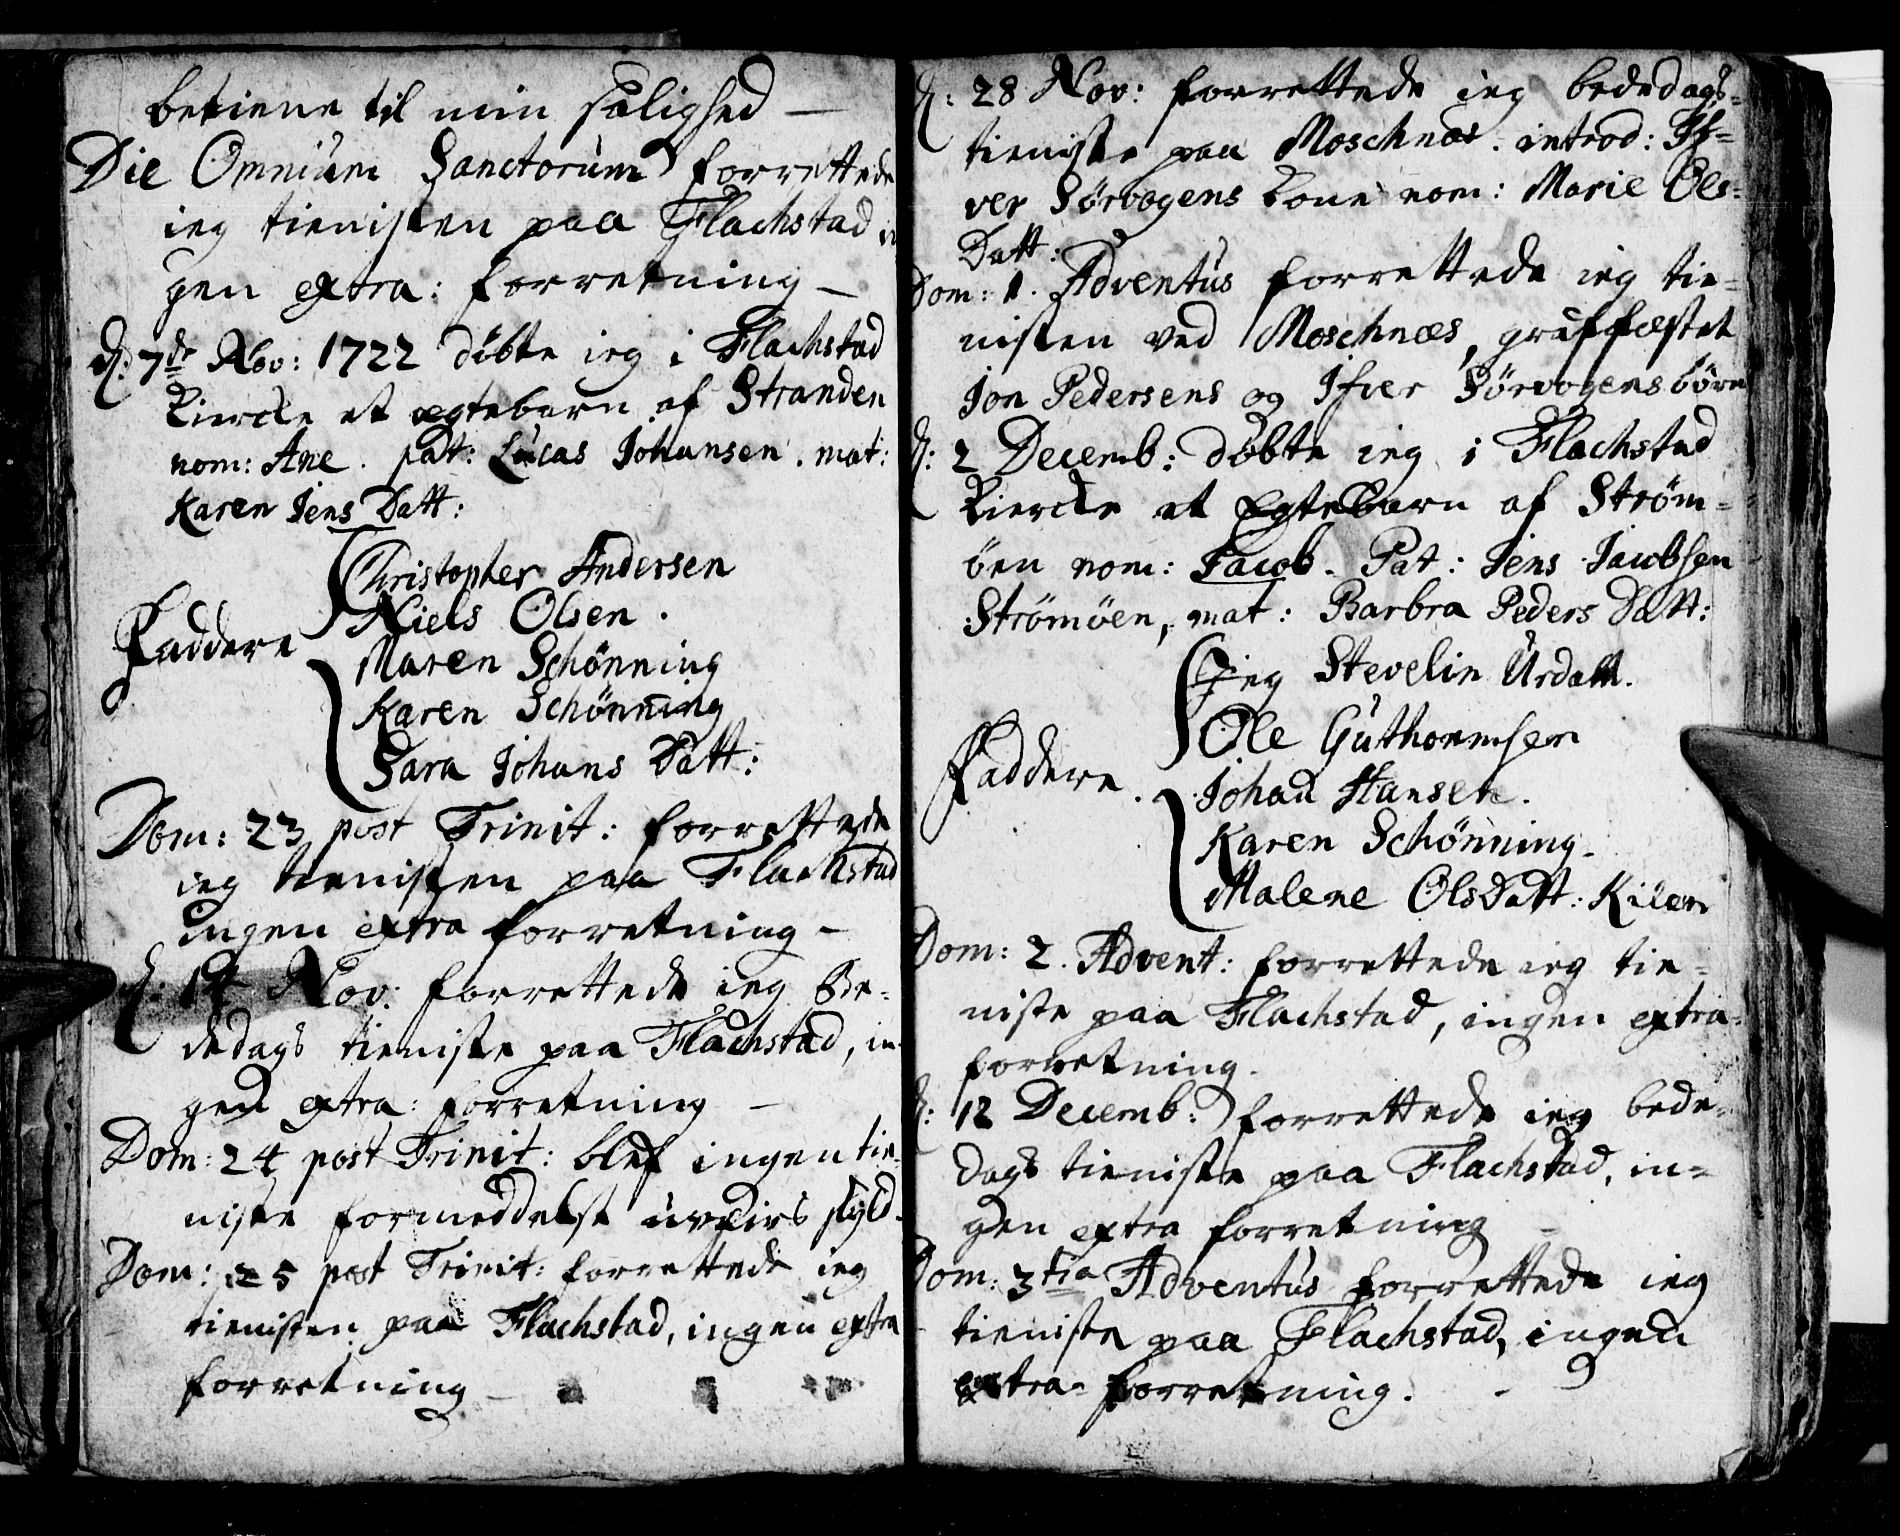 betiene til min salighed —
Die Omnium Sanctorum forrettede
ieg tienisten paa Flachstad in
gen extra: forretning —
d: 7de Nov: 1722 döbte ieg i Flachstad
Kircke et ægtebarn af Stranden
nom: Ane. pat: Lucas Johansen. mat:
Karen Jens Datt:
Christopher Andersen
Niels Olsen.
Faddere
Maren Schønning
Karen Schønning
Sara Johans Datt:
Dom: 23 post Trinit: forrettede
ieg tienisten paa Flachstad
ingen extra forretning –
d: 14 Nov: forrettede ieg Be-
dedags tieniste paa Flachstad, in-
gen extra: forretning —
Dom: 24 post Trinit: blef ingen tie-
niste formeddelst uveirs skyld.
Dom: 25 post Trinit: forrettede ieg
tienisten paa Flachstad, ingen extra
forretning —
d: 28 Nov: forrettede ieg bededags-
tieniste paa Moschnæs. introd: If-
ver Sørvogens Kone nom: Marie Ols-
Datt:
Dom: 1. Adventus forrettede ieg tie-
nisten ved Moschnæs, graffæstet
Jon Pedersens og Ifver Sörvogens börn
d: 2 Decemb: döbte ieg i Flachstad
Kircke et Egtebarn af Strøm-
öen nom: Jacob. Pat: Jens Jacobsen
Strömöen, mat: Barbra Peders Datt:
Jeg Stevelin Urdall.
Ole Guthormsen
Faddere.
Johan Hansen.
Karen Schönning.
Malene Olsdatt: Kilen
Dom: 2. Advent: forrettede ieg tie-
niste paa Flachstad, ingen extra-
forretning.
d: 12 Decemb: forrettede ieg bede-
dags tieniste paa Flachstad, in-
gen extra forretning –
Dom: 3tia Adventus forrettede ieg
tieniste paa Flachstad, ingen
extra- forretning.